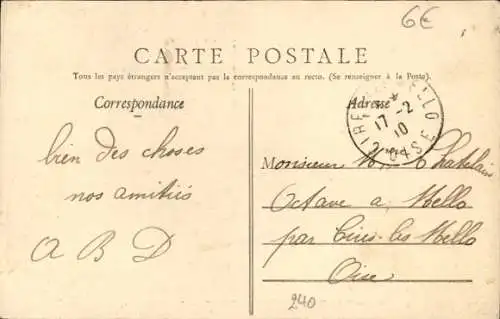 6€
CARTE POSTALE
Tous les pays étrangers n'acceptent pas la correspondance au recto. (Se renseigner à la Poste).
Correspondance
Adresse
17 -2
10
OISE
bien des choses
nos amitiés
A B D
Monsieur Chatelain
Octave a Mello
par Cires-les Mello
Oise
240